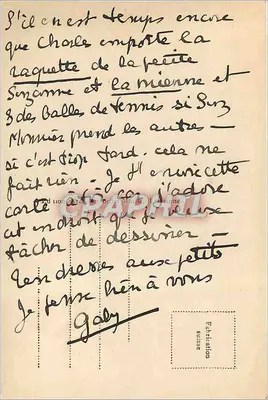 S'il en est temps encore
que Charles emporte la
raquette de la petite
Suzanne et la mienne et
3 des balles de tennis si Suz
Monnier prend les autres —
si c'est trop tard. cela ne
fait rien — Je t'envoie cette
carte j'adore
cet endroit que je veux
tâcher de dessiner —
Tendresses aux petits
Je pense bien à vous
Gaby
Fabrication
suisse